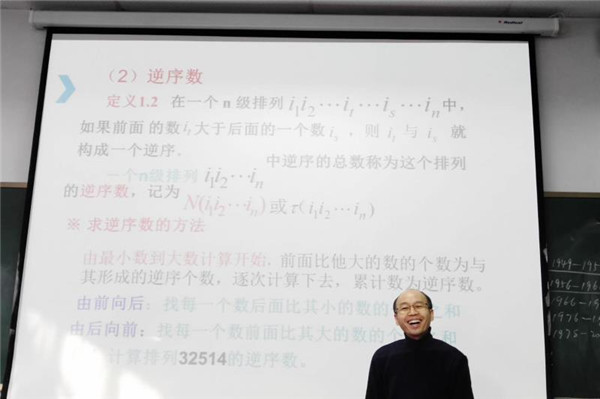 （2）逆序数
定义1.2 在一个 n 级排列 i₁i₂⋯iₜ⋯iₛ⋯iₙ中，
如果前面 的数iₜ大于后面的一个数iₛ ，则 iₜ 与 iₛ 就
构成一个逆序.
一个n级排列 i₁i₂⋯iₙ 中逆序的总数称为这个排列
的逆序数，记为 N(i₁i₂⋯iₙ)或τ(i₁i₂⋯iₙ)
※ 求逆序数的方法
由最小数到大数计算开始, 前面比他大的数的个数为与
其形成的逆序个数，逐次计算下去，累计数为逆序数。
由前向后：找每一个数后面比其小的数的 之和
由后向前：找每一个数前面比其大的数的个 和
计算排列32514的逆序数。
1949—195
1956—196
1966—19
1976—19
1978—20